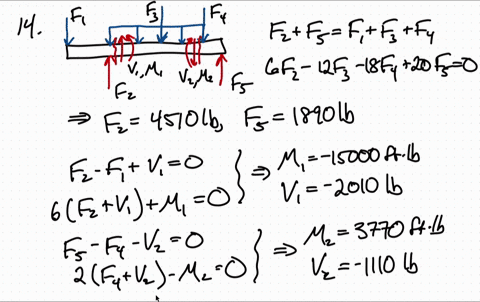 14.
F₁ F₃ F₄
V₁,M₁ V₂,M₂
F₂ F₅
F₂+F₅=F₁+F₃+F₄
6F₂-12F₃-18F₄+20F₅=0
⇒ F₂=4570lb, F₅=1890lb
F₂-F₁+V₁=0
6(F₂+V₁)+M₁=0
} ⇒ M₁=-15000 ft·lb
V₁=-2010 lb
F₅-F₄-V₂=0
2(F₄+V₂)-M₂=0
} ⇒ M₂=3770 ft·lb
V₂=-1110 lb